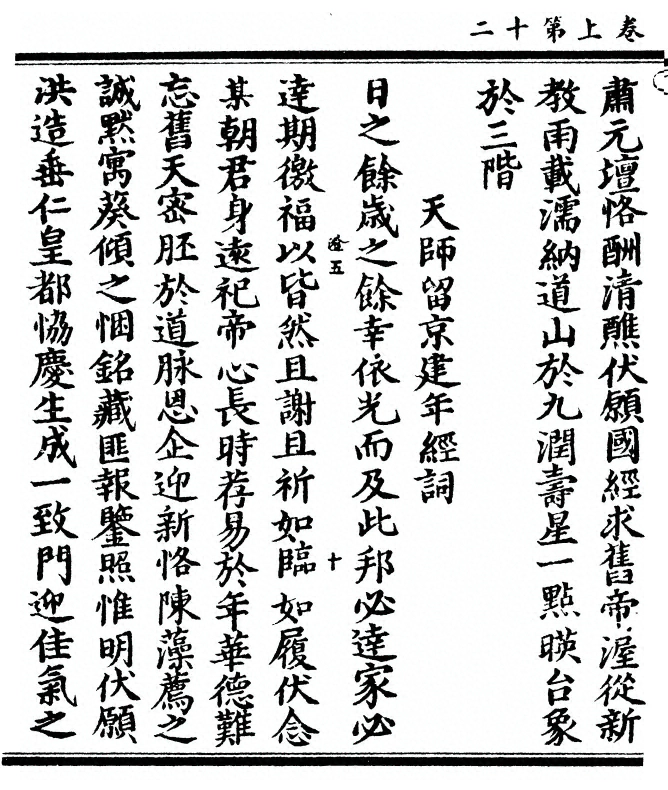 卷上第十二
肅元壇恪酬清醮伏願國經求舊帝渥從新
教雨載濡納道山於九潤壽星一點暎台象
於三階
天師留京建年經詞
日之餘歲之餘幸依光而及此邦必達家必
達期徼福以皆然且謝且祈如臨如履伏念
某朝君身遠祀帝心長時荐易於年華德難
忘舊天密胚於道脉恩企迎新恪陳藻薦之
誠黙寓葵傾之悃銘藏匪報鑒照惟明伏願
洪造垂仁皇都恊慶生成一致門迎佳氣之
澄五
十